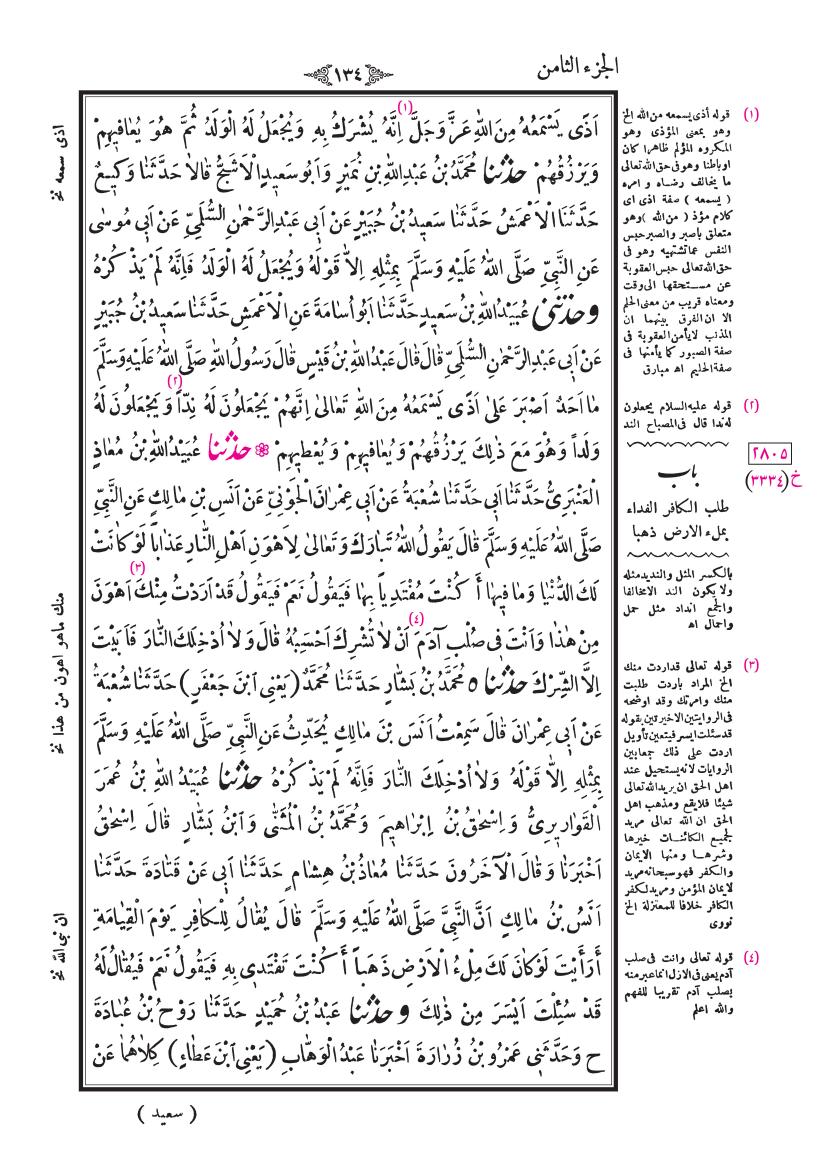 الجزء الثامن
١٣٤
اَذًى يَسْمَعُهُ مِنَ اللهِ عَزَّ وَجَلَّ (١) اِنَّهُ يُشْرَكُ بِهِ وَيُجْعَلُ لَهُ الْوَلَدُ ثُمَّ هُوَ يُعَافِيهِمْ
وَيَرْزُقُهُمْ حَدَّثَنَا مُحَمَّدُ بْنُ عَبْدِ اللهِ بْنِ نُمَيْرٍ وَاَبُو سَعِيدٍ الْاَشَجُّ قَالَا حَدَّثَنَا وَكِيعٌ
حَدَّثَنَا الْاَعْمَشُ حَدَّثَنَا سَعِيدُ بْنُ جُبَيْرٍ عَنْ اَبِي عَبْدِ الرَّحْمٰنِ السُّلَمِيِّ عَنْ اَبِي مُوسٰى
عَنِ النَّبِيِّ صَلَّى اللهُ عَلَيْهِ وَسَلَّمَ بِمِثْلِهِ اِلَّا قَوْلَهُ وَيُجْعَلُ لَهُ الْوَلَدُ فَاِنَّهُ لَمْ يَذْكُرْهُ
وَحَدَّثَنِي عُبَيْدُ اللهِ بْنُ سَعِيدٍ حَدَّثَنَا اَبُو اُسَامَةَ عَنِ الْاَعْمَشِ حَدَّثَنَا سَعِيدُ بْنُ جُبَيْرٍ
عَنْ اَبِي عَبْدِ الرَّحْمٰنِ السُّلَمِيِّ قَالَ قَالَ عَبْدُ اللهِ بْنُ قَيْسٍ قَالَ رَسُولُ اللهِ صَلَّى اللهُ عَلَيْهِ وَسَلَّمَ
مَا اَحَدٌ اَصْبَرَ عَلٰى اَذًى يَسْمَعُهُ مِنَ اللهِ تَعَالٰى اِنَّهُمْ يَجْعَلُونَ لَهُ نِدًّا (٢) وَيَجْعَلُونَ لَهُ
وَلَدًا وَهُوَ مَعَ ذٰلِكَ يَرْزُقُهُمْ وَيُعَافِيهِمْ وَيُعْطِيهِمْ ❁ حَدَّثَنَا عُبَيْدُ اللهِ بْنُ مُعَاذٍ
الْعَنْبَرِيُّ حَدَّثَنَا اَبِي حَدَّثَنَا شُعْبَةُ عَنْ اَبِي عِمْرَانَ الْجَوْنِيِّ عَنْ اَنَسِ بْنِ مَالِكٍ عَنِ النَّبِيِّ
صَلَّى اللهُ عَلَيْهِ وَسَلَّمَ قَالَ يَقُولُ اللهُ تَبَارَكَ وَتَعَالٰى لِاَهْوَنِ اَهْلِ النَّارِ عَذَابًا لَوْ كَانَتْ
لَكَ الدُّنْيَا وَمَا فِيهَا اَكُنْتَ مُفْتَدِيًا بِهَا فَيَقُولُ نَعَمْ فَيَقُولُ قَدْ اَرَدْتُ (٣) مِنْكَ اَهْوَنَ
مِنْ هٰذَا وَاَنْتَ فِي صُلْبِ آدَمَ (٤) اَنْ لَا تُشْرِكَ اَحْسِبُهُ قَالَ وَلَا اُدْخِلَكَ النَّارَ فَاَبَيْتَ
اِلَّا الشِّرْكَ حَدَّثَنَا ٥ مُحَمَّدُ بْنُ بَشَّارٍ حَدَّثَنَا مُحَمَّدٌ (يَعْنِي ابْنَ جَعْفَرٍ) حَدَّثَنَا شُعْبَةُ
عَنْ اَبِي عِمْرَانَ قَالَ سَمِعْتُ اَنَسَ بْنَ مَالِكٍ يُحَدِّثُ عَنِ النَّبِيِّ صَلَّى اللهُ عَلَيْهِ وَسَلَّمَ
بِمِثْلِهِ اِلَّا قَوْلَهُ وَلَا اُدْخِلَكَ النَّارَ فَاِنَّهُ لَمْ يَذْكُرْهُ حَدَّثَنَا عُبَيْدُ اللهِ بْنُ عُمَرَ
الْقَوَارِيرِيُّ وَاِسْحٰقُ بْنُ اِبْرَاهِيمَ وَمُحَمَّدُ بْنُ الْمُثَنّٰى وَابْنُ بَشَّارٍ قَالَ اِسْحٰقُ
اَخْبَرَنَا وَقَالَ الْآخَرُونَ حَدَّثَنَا مُعَاذُ بْنُ هِشَامٍ حَدَّثَنَا اَبِي عَنْ قَتَادَةَ حَدَّثَنَا
اَنَسُ بْنُ مَالِكٍ اَنَّ النَّبِيَّ صَلَّى اللهُ عَلَيْهِ وَسَلَّمَ قَالَ يُقَالُ لِلْكَافِرِ يَوْمَ الْقِيَامَةِ
أَرَأَيْتَ لَوْ كَانَ لَكَ مِلْءُ الْاَرْضِ ذَهَبًا اَكُنْتَ تَفْتَدِي بِهِ فَيَقُولُ نَعَمْ فَيُقَالُ لَهُ
قَدْ سُئِلْتَ اَيْسَرَ مِنْ ذٰلِكَ وَحَدَّثَنَا عَبْدُ بْنُ حُمَيْدٍ حَدَّثَنَا رَوْحُ بْنُ عُبَادَةَ
ح وَحَدَّثَنِي عَمْرُو بْنُ زُرَارَةَ اَخْبَرَنَا عَبْدُ الْوَهَّابِ (يَعْنِي ابْنَ عَطَاءٍ) كِلَاهُمَا عَنْ
( سعيد )
(١) قوله أذى يسمعه من الله الخ
وهو بمعنى المؤذى وهو
المكروه المؤلم ظاهرا كان
او باطنا وهو فى حق الله تعالى
ما يخالف رضاه و امره
( يسمعه ) صفة اذى اى
كلام مؤذ ( من الله ) وهو
متعلق باصبر والصبر حبس
النفس عما تشتهيه وهو فى
حق الله تعالى حبس العقوبة
عن مستحقها الى وقت
ومعناه قريب من معنى الحلم
الا ان الفرق بينهما ان
المذنب لا يأمن العقوبة فى
صفة الصبور كما يأمنها فى
صفة الحليم اه مبارق
(٢) قوله عليه السلام يجعلون
له ندا قال فى المصباح الند
٢٨٠٥
خ (٣٣٣٤)
باب
طلب الكافر الفداء
بملء الارض ذهبا
بالكسر المثل والنديد مثله
ولا يكون الند الا مخالفا
والجمع انداد مثل حمل
واحمال اه
(٣) قوله تعالى قد اردت منك
الخ المراد باردت طلبت
منك وامرتك وقد اوضحه
فى الروايتين الاخيرتين بقوله
قد سئلت ايسر فيتعين تأويل
اردت على ذلك جمعا بين
الروايات لانه يستحيل عند
اهل الحق ان يريد الله تعالى
شيئا فلا يقع ومذهب اهل
الحق ان الله تعالى مريد
لجميع الكائنات خيرها
وشرها ومنها الايمان
والكفر فهو سبحانه مريد
لايمان المؤمن ومريد لكفر
الكافر خلافا للمعتزلة الخ
نووى
(٤) قوله تعالى وانت فى صلب
آدم يعنى فى الازل انما عبر منه
بصلب آدم تقريبا للفهم
والله اعلم
اذى سمعه نخ
منك ما هو اهون من هذا نخ
ان نبى الله نخ